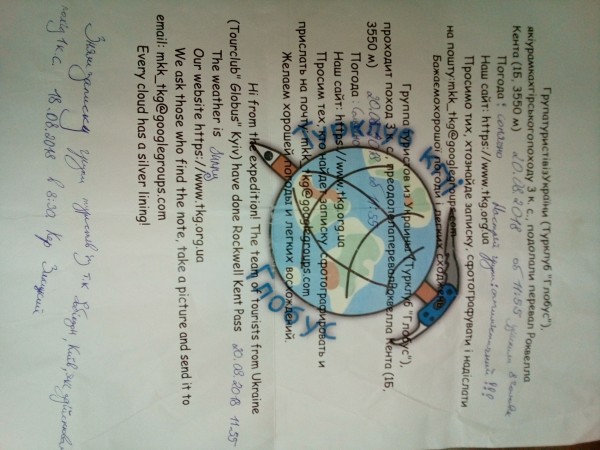 Група туристів із України (Турклуб "Глобус"),
які у рамках гірського походу 3 к. с., подолали перевал Роквелла
Кента (1Б, 3550 м) 20.08.2018 об 11:55
Погода: сонячно
Наш сайт: https://www.tkg.org/ua
Просимо тих, хто знайде записку, сфотографувати і надіслати
на пошту: mkk_tkg@googlegroups.com
Бажаємо хорошої погоди і легких сходжень
Группа туристов из Украины (Турклуб "Глобус"),
проходит поход 3 к. с., преодолела перевал Роквелла Кента (1Б,
3550 м) 20.08.2018 11:55
Погода:
Наш сайт: https://www.tkg.org.ua
Просим тех, кто найдет записку, сфотографировать и
прислать на почту mkk_tkg@googlegroups.com
Желаем хорошей погоды и легких восхождений.
Hi from the expedition! The team of tourists from Ukraine
(Tourclub" Globus" Kyiv) have done Rockwell Kent Pass 20.08.2018 11:55
The weather is sunny
Our website https://www.tkg.org.ua
We ask those who find the note, take a picture and send it to
email: mkk_tkg@googlegroups.com
Every cloud has a silver lining!
записку групи туристів із т.к. Глобус, Київ,
похід т.к.с. 18.08.2018 в 8:30
ГЛОБУС